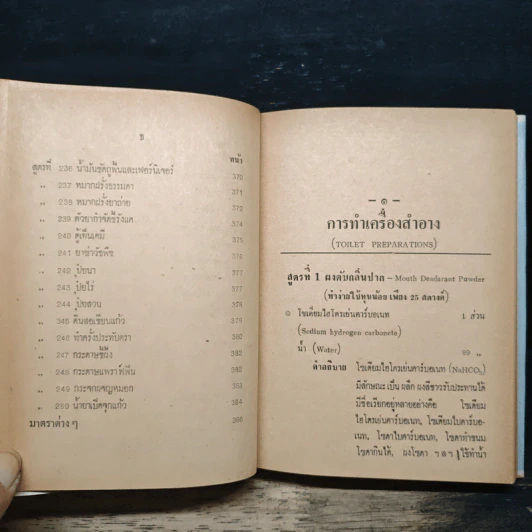 ช
หน้า
สูตรที่ 236 น้ำมันขัดถูพื้นและเฟอร์นิเจอร์ 370
„ 237 หมากฝรั่งธรรมดา 370
„ 238 หมากฝรั่งยาถ่าย 372
„ 239 ตัวยากำจัดขี้รังแค...
„ 240 ตู้เย็นเคมี
„ 241 ยาฆ่าวัชพืช
„ 242 ปุ๋ยนา
„ 243 ปุ๋ยไร่
„ 244 ปุ๋ยสวน
„ 245 ดินสอเขียนแก้ว
„ 246 ทำครั่งประทับตรา
„ 247 กระดาษขี้ผึ้ง 382
„ 248 กระดาษแพรวาร์พืน
„ 249 กระจกผจญหมอก
„ 250 น้ำยาเปิดจุกแก้ว
มาตราต่าง ๆ 388
— ๑ —
การทำเครื่องสำอาง
(TOILET PREPARATIONS)
สูตรที่ 1 ผงดับกลิ่นปาก – Mouth Deodarant Powder
(ทำง่ายใช้ทุนน้อย เพียง 25 สตางค์)
โซเดียมไฮโดรเย่นคาร์บอเนท 1 ส่วน
(Sodium hydrogen carbonate)
น้ำ (Water) 99 „
คำอธิบาย โซเดียมไฮโดรเย่นคาร์บอเนท (NaHCO₃)
มีลักษณะเป็น ผลึก ผงสีขาวรับประทานได้
มีชื่อเรียกอยู่หลายอย่างคือ โซเดียม
ไฮโดรเย่นคาร์บอเนท, โซเดียมไบคาร์บอ-
เนท, โซดาไบคาร์บอเนท, โซดาทำขนม
โซดากินได้, ผงโซดา ฯลฯ ใช้ทำน้ำ